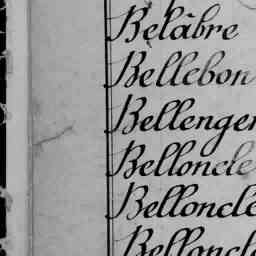 Belâbre
Bellebon
Bellenger
Belloncle
Belloncle
Belloncle